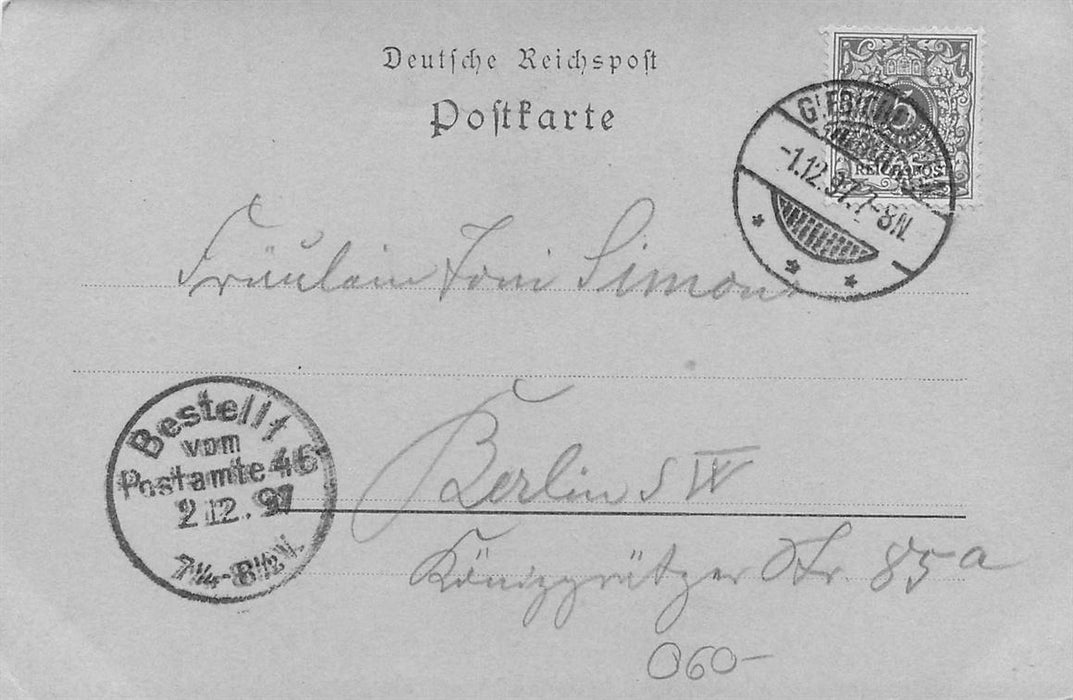 Deutsche Reichspost
Postkarte
5
REICHSPOST
-1.12.97.7-8N.
Fräulein Toni Simon
Bestellt
vom
Postamte 46
2.12.97
7¼-8½V.
Berlin SW
Königgrätzer Str. 85a
060-